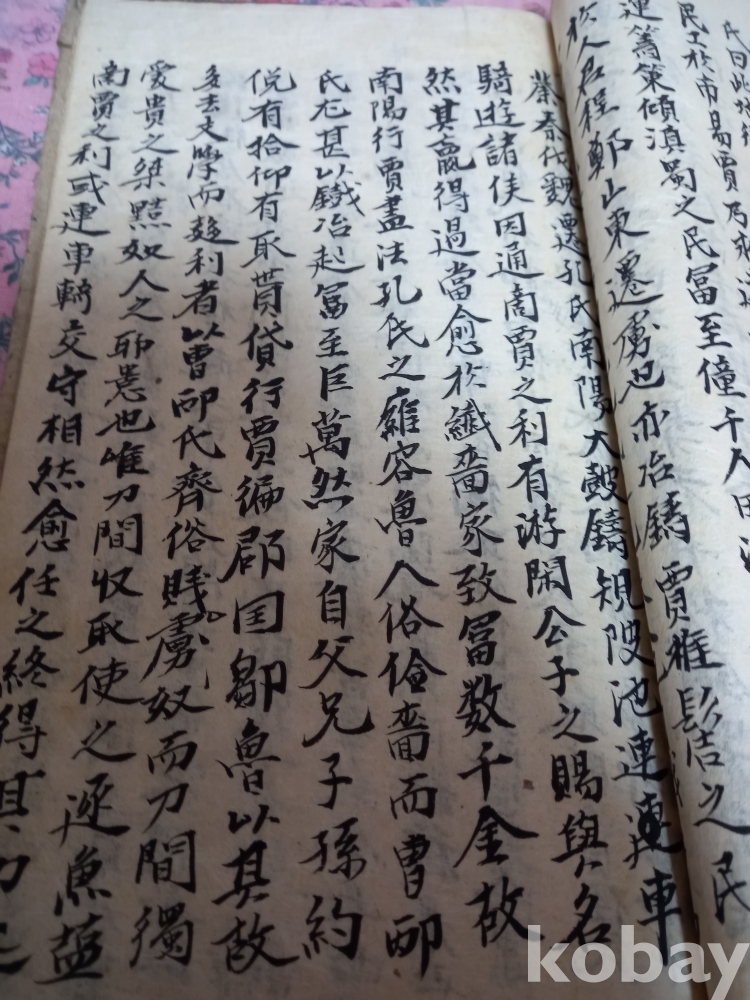 民工於南易賈乃
運籌策傾滇蜀之民冨至僮千人田池
於人君程鄭山東遷虜也亦冶鑄賈椎髻之民
秦伐魏遷孔氏南陽大皷鑄規陂池連連車
騎遊諸侯因通商賈之利有游閑公子之賜與名
然其贏得過當愈於纖嗇家致冨数千金故
南陽行賈盡法孔氏之雍容魯人俗儉嗇而曹邴
氏尤甚以鐡冶起冨至巨萬然家自父兄子孫約
俛有拾仰有取貰貸行賈徧郡国鄒魯以其故
多去文學而趍利者以曹邴氏齊俗賎虜奴而刀間獨
愛貴之桀黠奴人之所患也唯刀間収取使之逐魚盐
商賈之利或連車騎交守相然愈任之終得其力